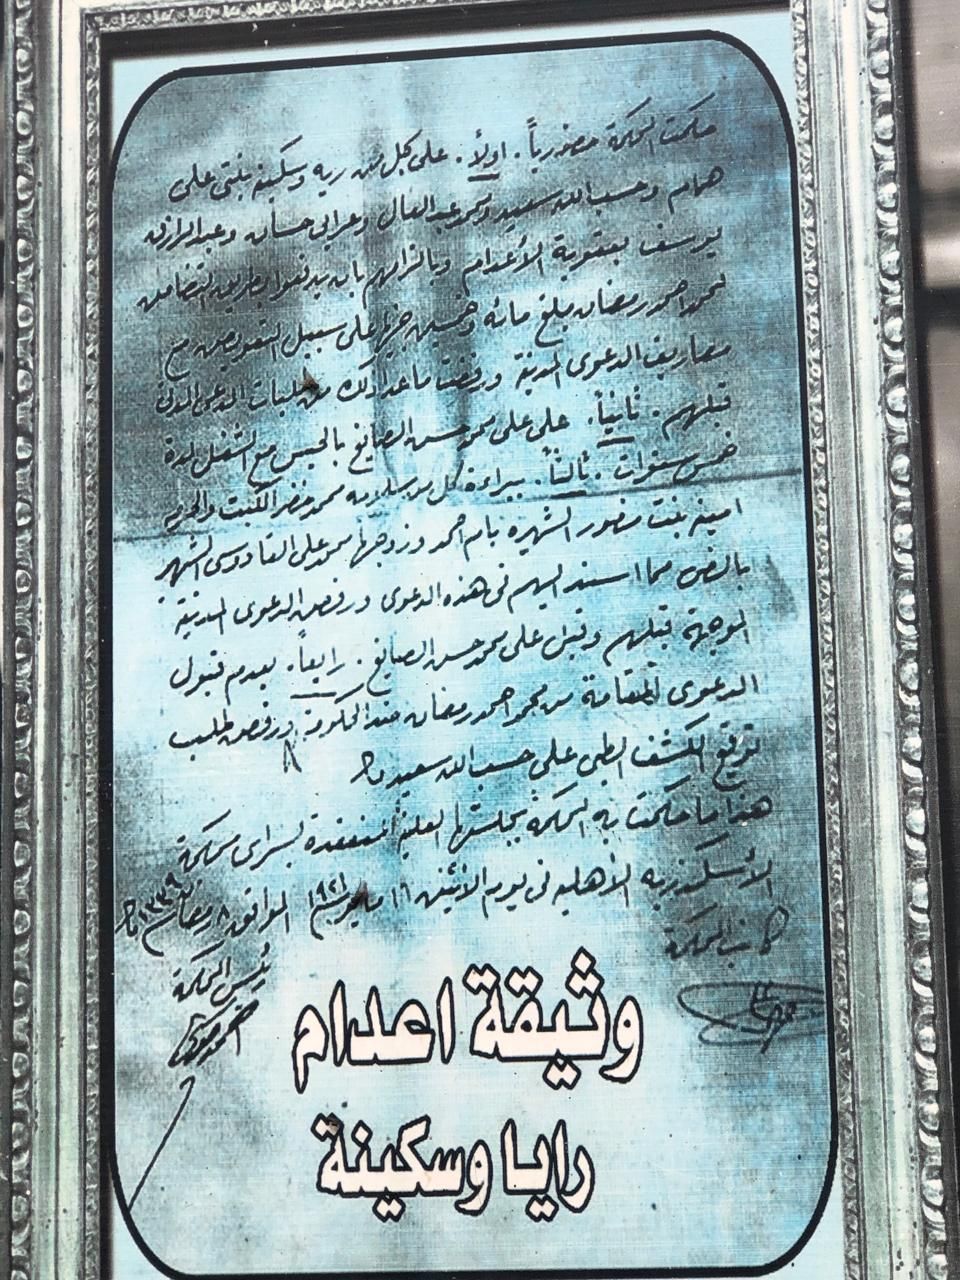 حكمت المحكمة حضورياً. اولاً. على كل من ريه وسكينه بنتى على
همام وحسب الله سعيد ومحمد عبد العال وعرابى حسان وعبد الرازق
يوسف بعقوبة الأعدام وبالزامهم بان يدفعوا بطريق التضامن
لمحمد احمد رمضان مبلغ مائة وخمسين جنيها على سبيل التعويض مع
مصاريف الدعوى المدنية ورفضت ماعدا ذلك من طلبات الدعوى المدنية
قبلهم. ثانياً. على على محمد حسن الصايغ بالحبس مع الشغل لمدة
خمس سنوات. ثالثاً. ببراءة كل من سلامه محمد خضر الكبت والحرمه
امينه بنت منصور الشهيره بام احمد وزوجها محمد على القادوسى الشهير
بالنص مما اسند اليهم فى هذه الدعوى ورفض الدعوى المدنية
الموجهة قبلهم وقبل على محمد حسن الصايغ. رابعاً. بعدم قبول
الدعوى المقامة من محمد احمد رمضان ضد الحكومة ورفض طلب
توقيع الكشف الطبى على حسب الله سعيد
هذا ما حكمت به المحكمة بجلستها العلنية المنعقدة بسراى محكمة
الأسكندريه الأهليه فى يوم الاثنين ١٦ مايو سنة ١٩٢١ الموافق ٨ رمضان سنة ١٣٣٩
كاتب المحكمة
رئيس المحكمة
وثيقة اعدام
رايا وسكينة